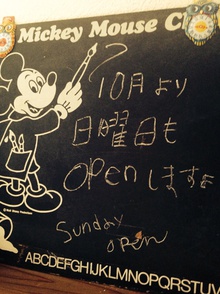 Mickey Mouse Cl
10月より
日曜日も
OPENします
Sunday
open
ABCDEFGHIJKLMNOPQRSTUV